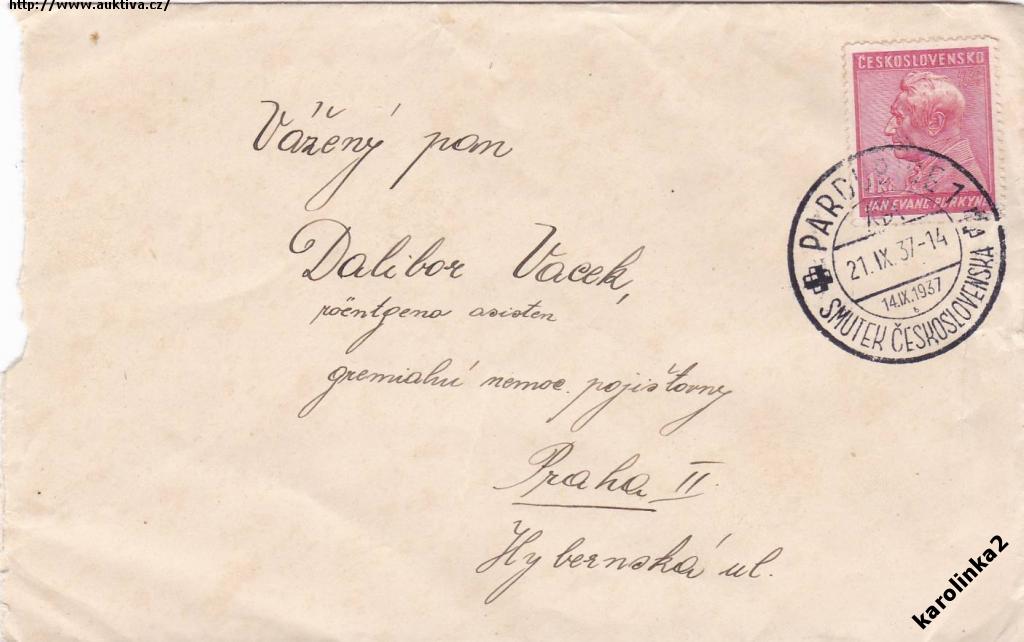 http://www.auktiva.cz/
ČESKOSLOVENSKO
1 Kč
JAN EVANG. PURKYNĚ
PARDUBICE 1
21.IX.37-14
14.IX.1937
b
SMUTEK ČESKOSLOVENSKA
Vážený pan
Dalibor Vacek,
röentgeno asisten
gremialní nemoc. pojišťovny
Praha II.
Hybernská ul.
karolinka2